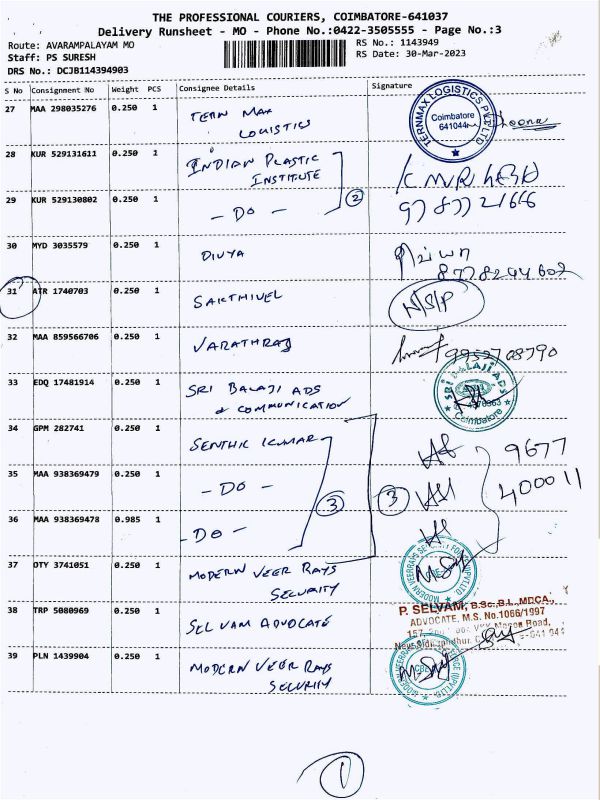 THE PROFESSIONAL COURIERS, COIMBATORE-641037
Delivery Runsheet - MO - Phone No.:0422-3505555 - Page No.:3
Route: AVARAMPALAYAM MO
RS No.: 1143949
Staff: PS SURESH
RS Date: 30-Mar-2023
DRS No.: DCJB114394903
S No Consignment No Weight PCS Consignee Details Signature
27 MAA 298035276 0.250 1 TERN MAX
LOGISTICS
TERNMAX LOGISTICS PVT LTD
Coimbatore
641044
28 KUR 529131611 0.250 1 INDIAN PLASTIC
INSTITUTE
29 KUR 529130802 0.250 1 - DO - 2
30 MYD 3035579 0.250 1 DIVYA
திவ்யா
8778294602
31 ATR 1740703 0.250 1 SAKTHIVEL N/S/P
32 MAA 859566706 0.250 1 VARATHRAJ
33 EDQ 17481914 0.250 1 SRI BALAJI ADS
& COMMUNICATION
SRI BALAJI ADS
Coimbatore
34 GPM 282741 0.250 1 SENTHIL KUMAR 9677
35 MAA 938369479 0.250 1 - DO - 3 3 400011
36 MAA 938369478 0.985 1 - DO -
37 OTY 3741051 0.250 1 MODERN VEER RAYS
SECURITY
38 TRP 5080969 0.250 1 SELVAM ADVOCATE
P. SELVAM, B.Sc.,B.L.,MDCA.,
ADVOCATE, M.S. No.1066/1997
39 PLN 1439904 0.250 1 MODERN VEER RAYS
SECURITY
1